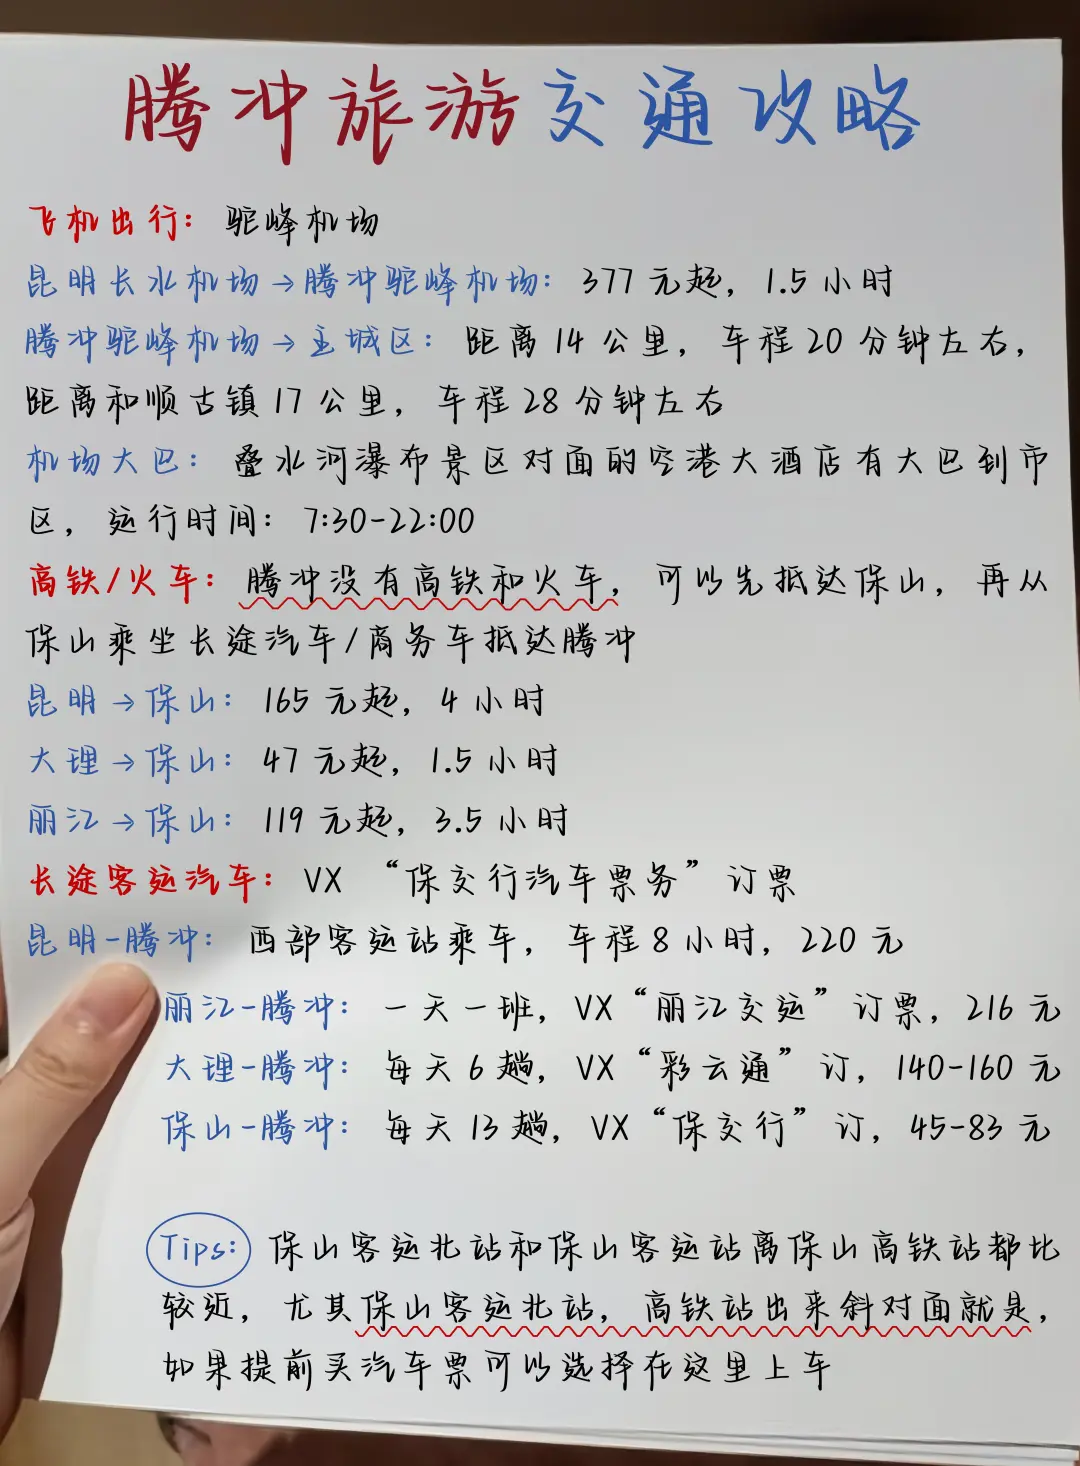 腾冲旅游交通攻略
飞机出行：驼峰机场
昆明长水机场→腾冲驼峰机场：377元起，1.5小时
腾冲驼峰机场→主城区：距离14公里，车程20分钟左右，
距离和顺古镇17公里，车程28分钟左右
机场大巴：叠水河瀑布景区对面的空港大酒店有大巴到市
区，运行时间：7:30-22:00
高铁/火车：腾冲没有高铁和火车，可以先抵达保山，再从
保山乘坐长途汽车/商务车抵达腾冲
昆明→保山：165元起，4小时
大理→保山：47元起，1.5小时
丽江→保山：119元起，3.5小时
长途客运汽车：VX “保交行汽车票务” 订票
昆明-腾冲：西部客运站乘车，车程8小时，220元
丽江-腾冲：一天一班，VX“丽江交运”订票，216元
大理-腾冲：每天6趟，VX“彩云通”订，140-160元
保山-腾冲：每天13趟，VX“保交行”订，45-83元
Tips：保山客运北站和保山客运站离保山高铁站都比
较近，尤其保山客运北站，高铁站出来斜对面就是，
如果提前买汽车票可以选择在这里上车